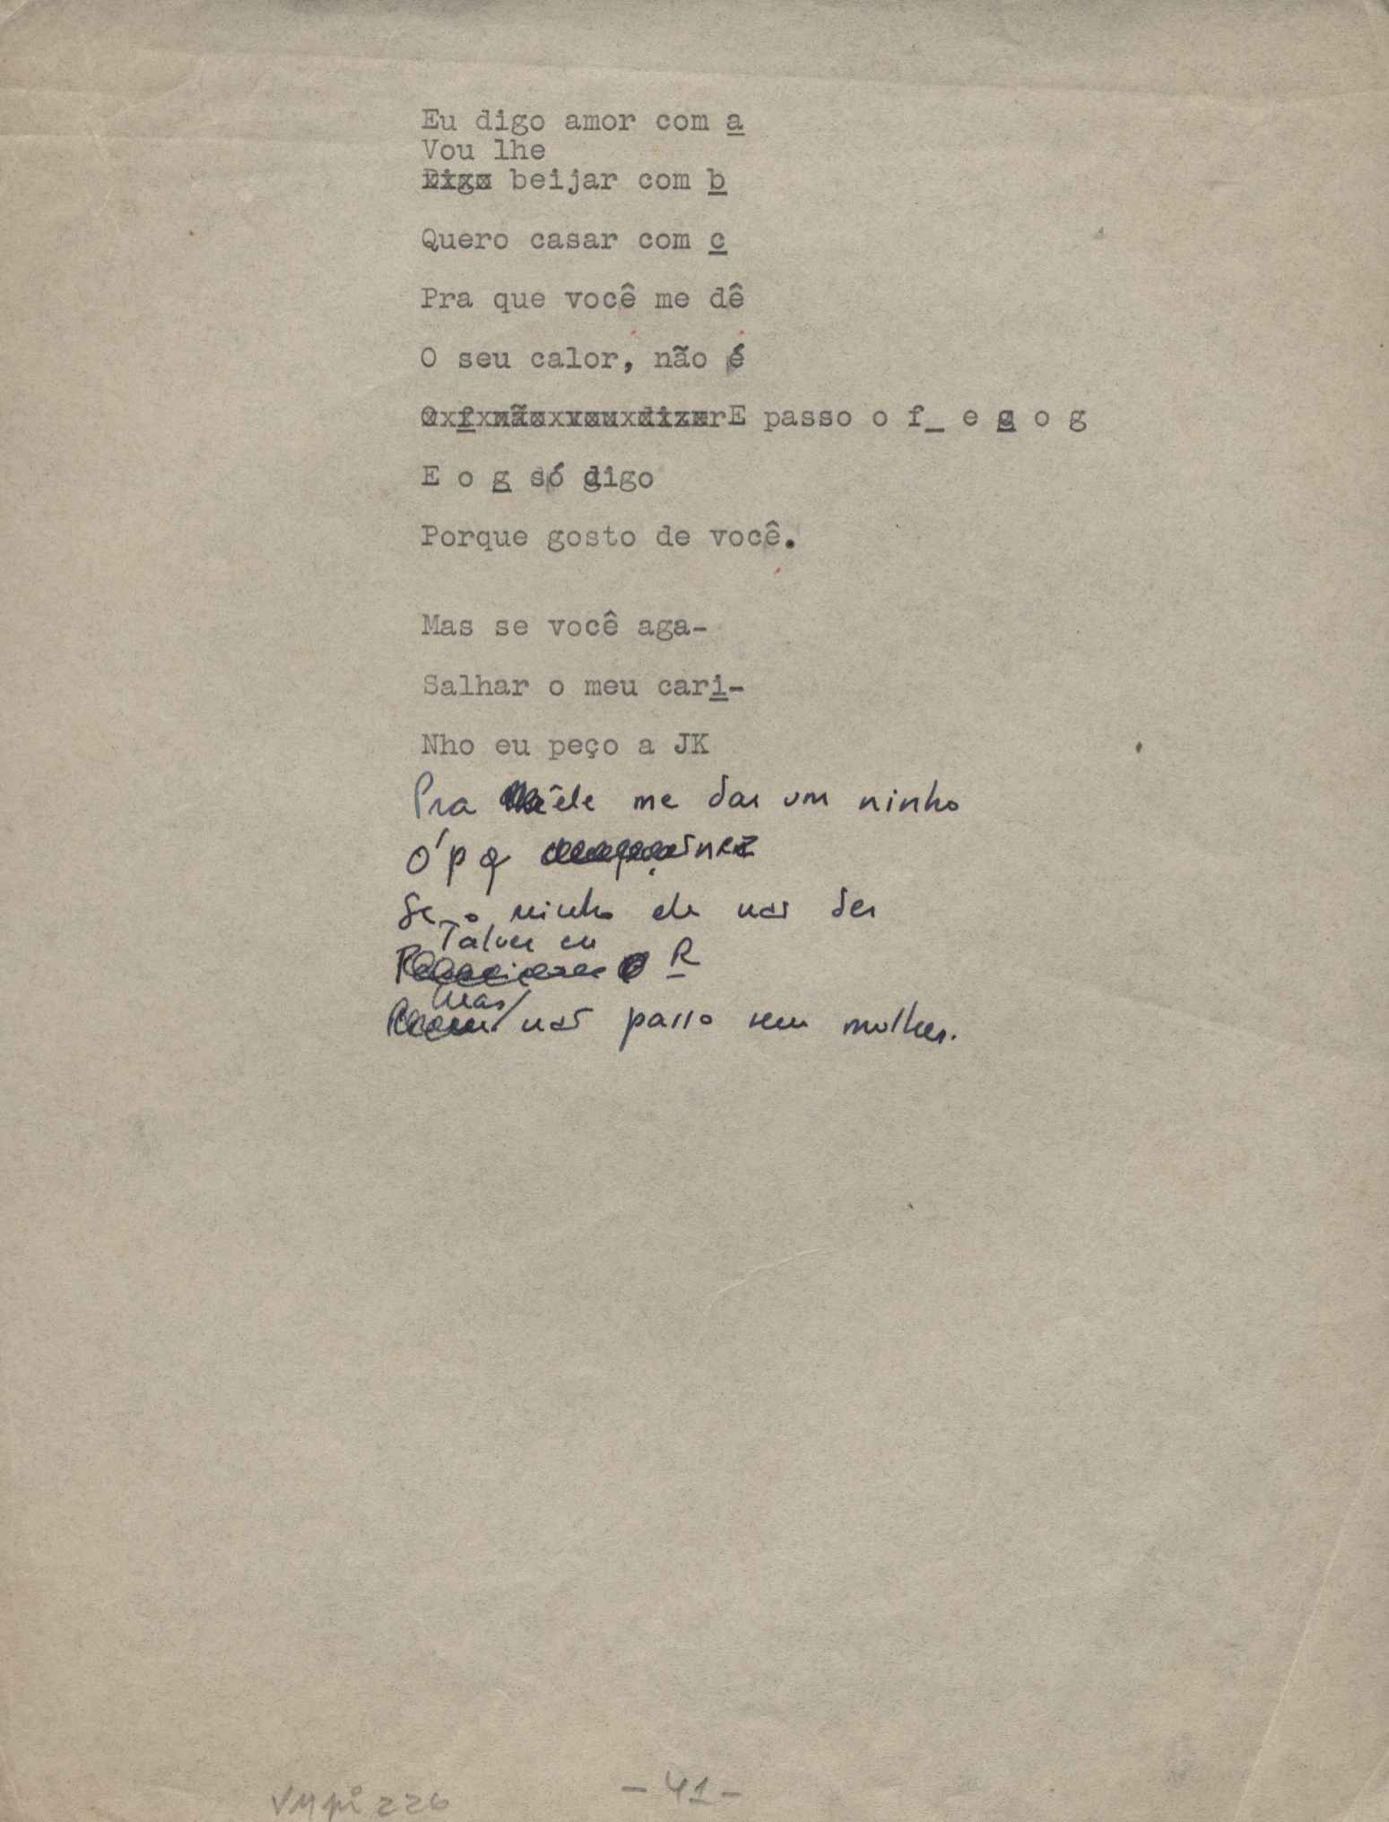 Eu digo amor com a
Vou lhe
Digo beijar com b
Quero casar com c
Pra que você me dê
O seu calor, não é
O f não vou dizer E passo o f_ e g o g
E o g só digo
Porque gosto de você.
Mas se você aga-
Salhar o meu cari-
Nho eu peço a JK
Pra êle me dar um ninho
Ó p q
Se o ninho ele não der
Talvez eu
R
Mas
não passo sem mulher.
VMpi 226
- 41 -